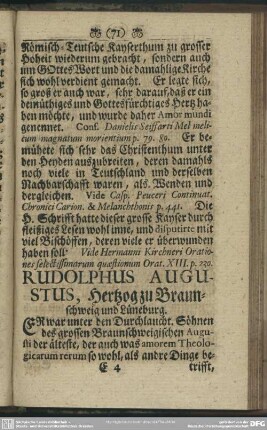 (71)
Römisch-Teutsche Kayserthum zu grosser
Hoheit wiederum gebracht, sondern auch
um GOttes Wort und die damahlige Kirche
sich wohl verdient gemacht. Er legte sich,
so groß er auch war, sehr darauf, daß er ein
demüthiges und Gottesfürchtiges Hertz ha-
ben möchte, und wurde daher Amor mundi
genennet. Conf. Danielis Seiffarti Mel meli-
cum magnatum morientium p. 79. 80. Er be-
mühete sich sehr das Christenthum unter
den Heyden auszubreiten, deren damahls
noch viele in Teutschland und derselben
Nachbarschafft waren, als Wenden und
dergleichen. Vide Casp. Peuceri Continuat.
Chronici Carion. & Melanchthonis p. 441. Die
H. Schrifft hatte dieser grosse Kayser durch
fleißiges Lesen wohl inne, und disputirte mit
viel Bischöffen, deren viele er überwunden
haben soll. Vide Hermanni Kirchneri Oratio-
nes selectissimarum quæstionum Orat. XIII. p. 230.
RUDOLPHUS AUGU-
STUS, Hertzog zu Braun-
schweig und Lüneburg.
ER war unter den Durchlaucht. Söhnen
des grossen Braunschweigischen Augu-
sti der älteste, der auch was amorem Theolo-
gicarum rerum so wohl, als andre Dinge be-
E 4 trifft,